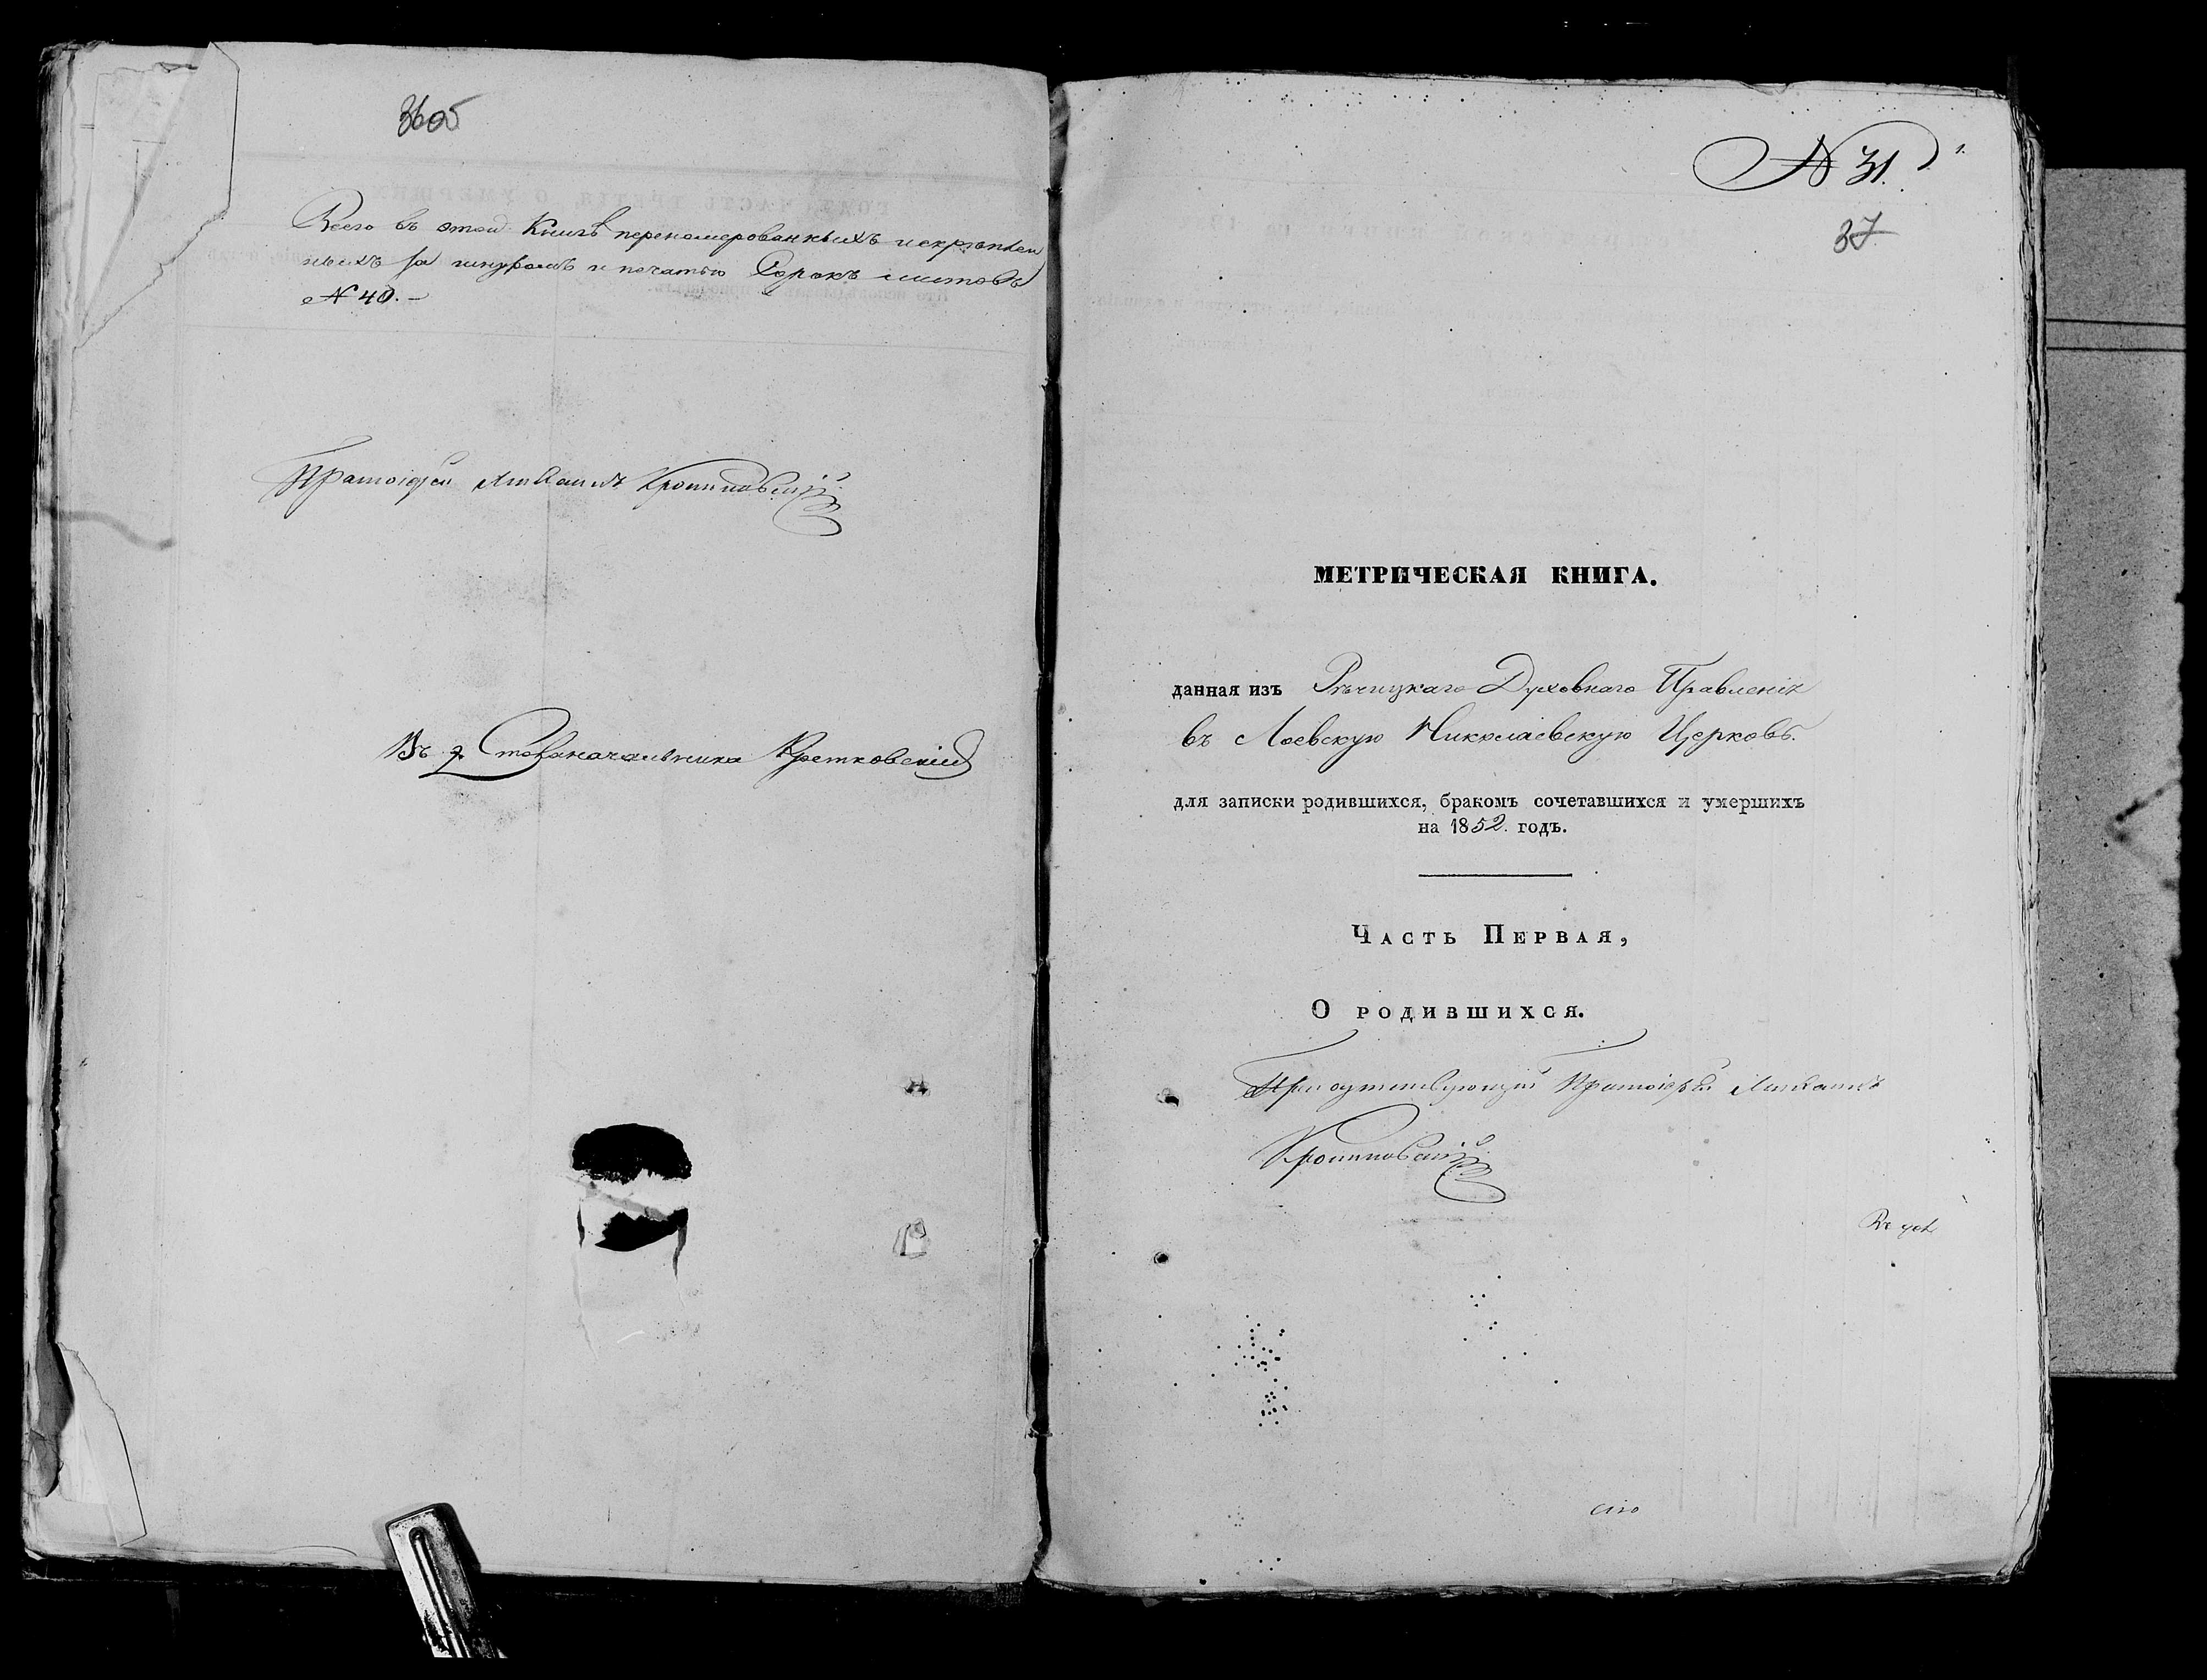 Всего въ этой Книгѣ перенамерованныхъ и скрѣплен
ныхъ за шнуромъ и печатью Сорокъ листовъ
№ 40. –
Въ д. Столоначальника Кретковскій
№ 31.
1.
37
МЕТРИЧЕСКАЯ КНИГА.
данная изъ Рѣчицкаго Духовнаго Правленія
въ Лоевскую Николаевскую Церковь.
для записки родившихся, бракомъ сочетавшихся и умершихъ
на 1852. годъ.
Часть Первая,
О родившихся.
Присутствующій Протоіерей